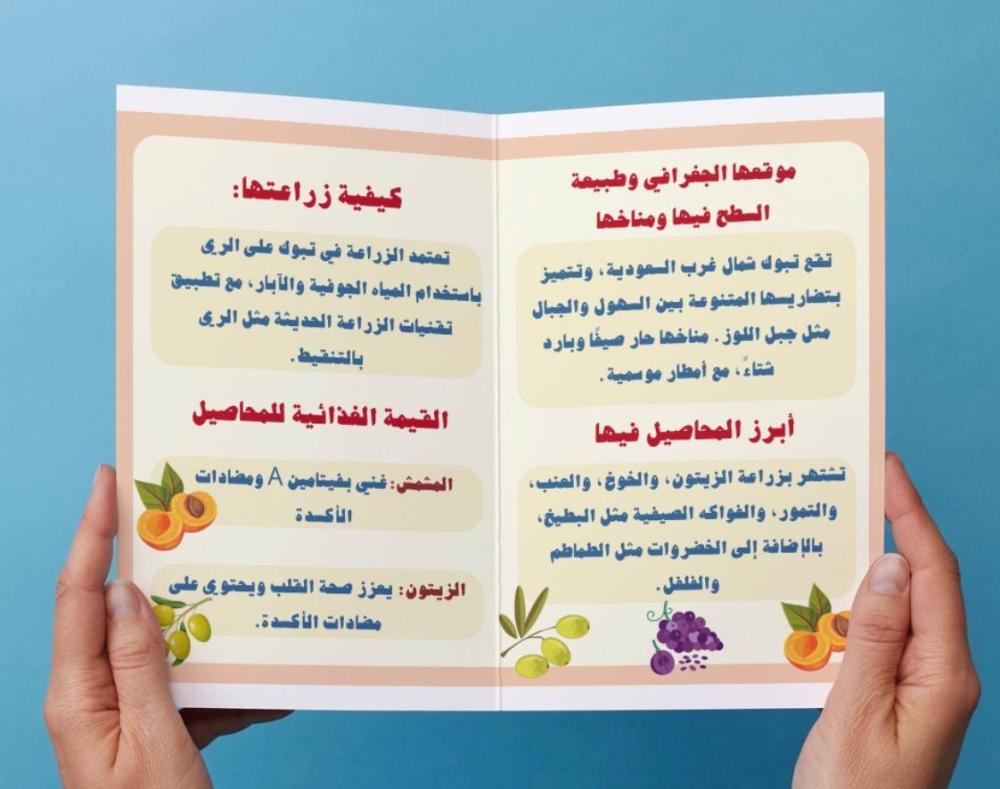 موقعها الجغرافي وطبيعة
السطح فيها ومناخها
تقع تبوك شمال غرب السعودية، وتتميز
بتضاريسها المتنوعة بين السهول والجبال
مثل جبل اللوز. مناخها حار صيفًا وبارد
شتاءً، مع أمطار موسمية.
أبرز المحاصيل فيها
تشتهر بزراعة الزيتون، والخوخ، والعنب،
والتمور، والفواكه الصيفية مثل البطيخ،
بالإضافة إلى الخضروات مثل الطماطم
والفلفل.
كيفية زراعتها:
تعتمد الزراعة في تبوك على الري
باستخدام المياه الجوفية والآبار، مع تطبيق
تقنيات الزراعة الحديثة مثل الري
بالتنقيط.
القيمة الغذائية للمحاصيل
المشمش: غني بفيتامين A ومضادات
الأكسدة
الزيتون: يعزز صحة القلب ويحتوي على
مضادات الأكسدة.